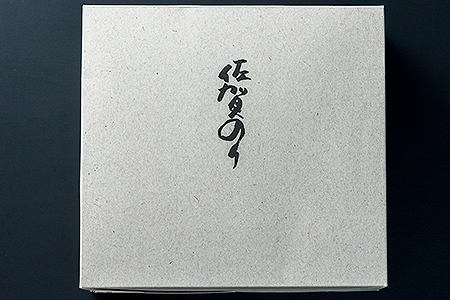 佐賀のり